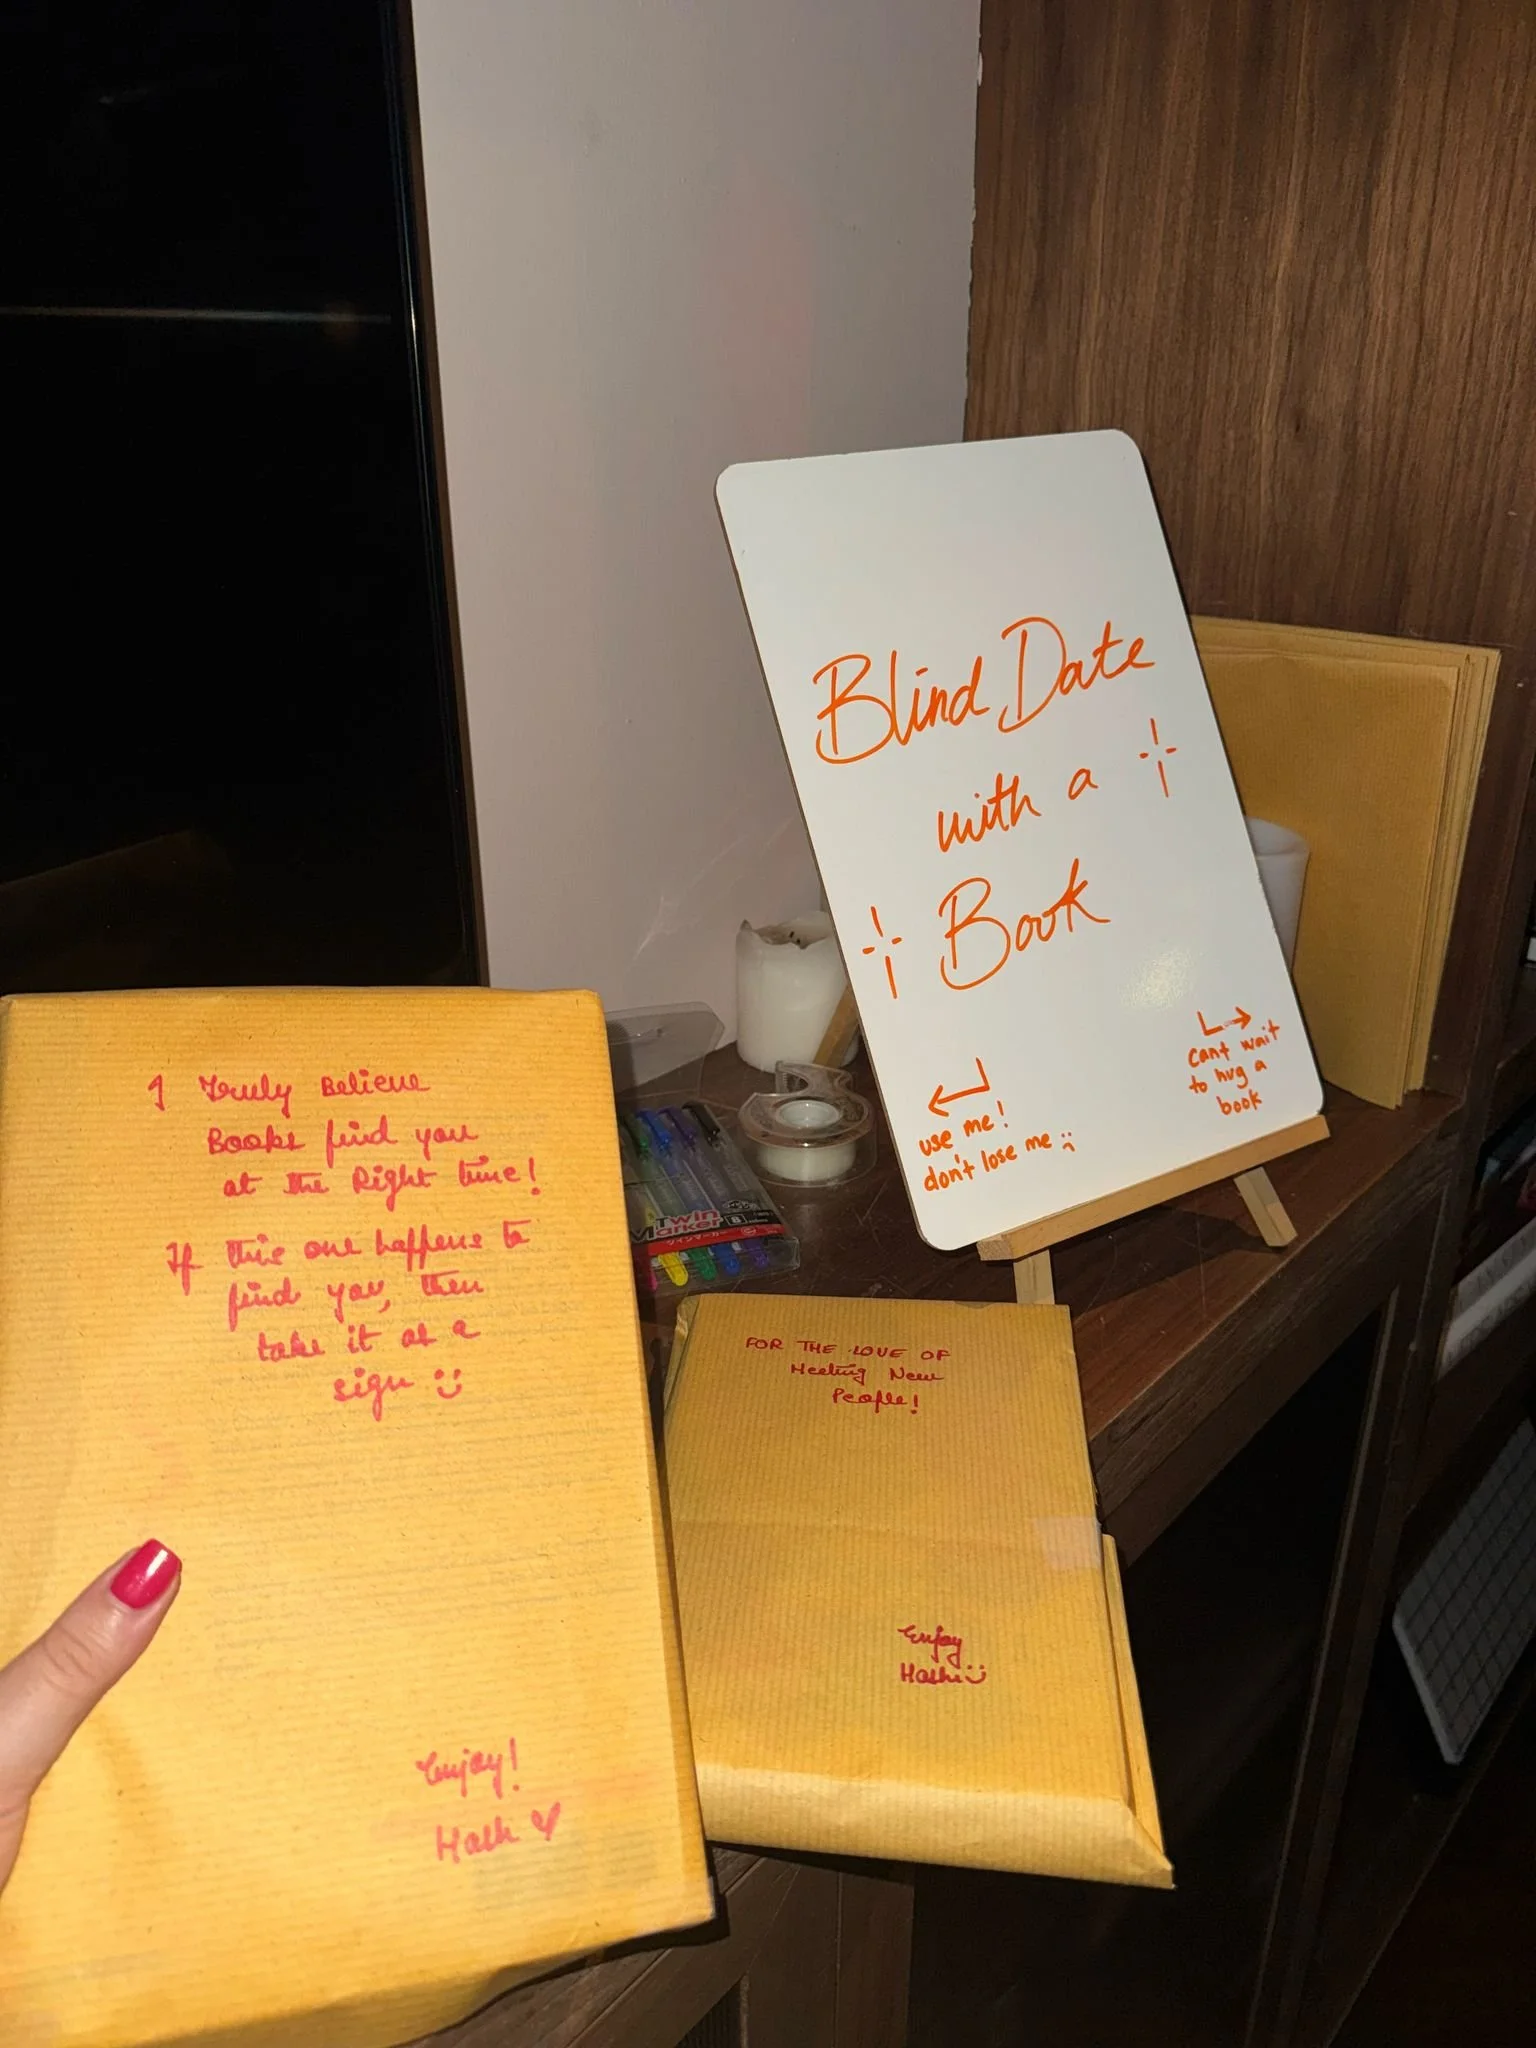 Blind Date
with a
Book
use me!
don't lose me
can't wait
to hug a
book
I Truly Believe
Books find you
at the Right time!
If this one happens to
find you, then
take it as a
sign
Enjoy!
FOR THE LOVE OF
Meeting New
People!
Enjoy
Twin
Marker
8
ツインマーカー